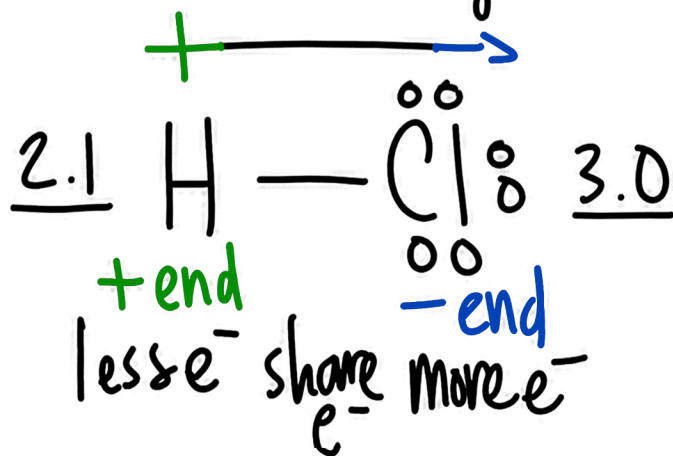 2.1 H — Cl 3.0
+ end – end
less e⁻ share more e⁻
e⁻